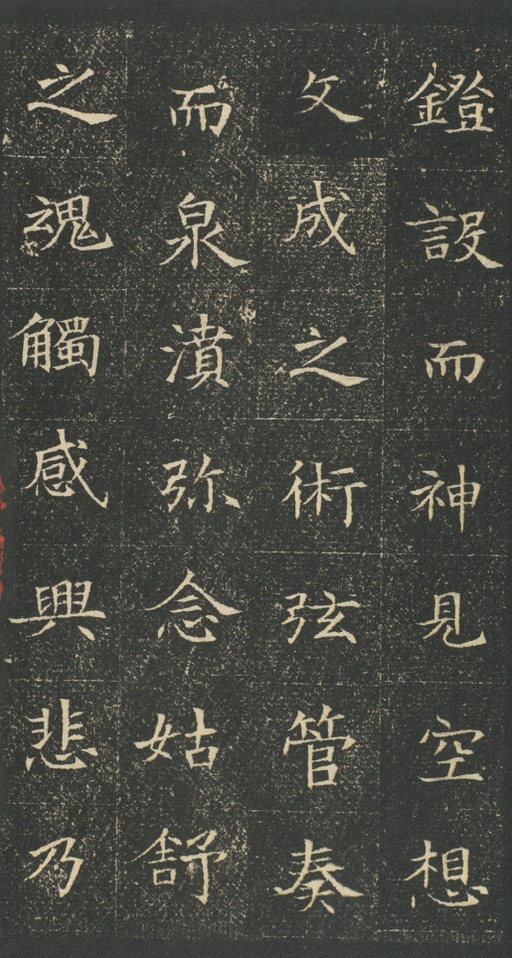 鐙設而神見空想
文成之術弦管奏
而泉濆弥念姑舒
之魂觸感興悲乃